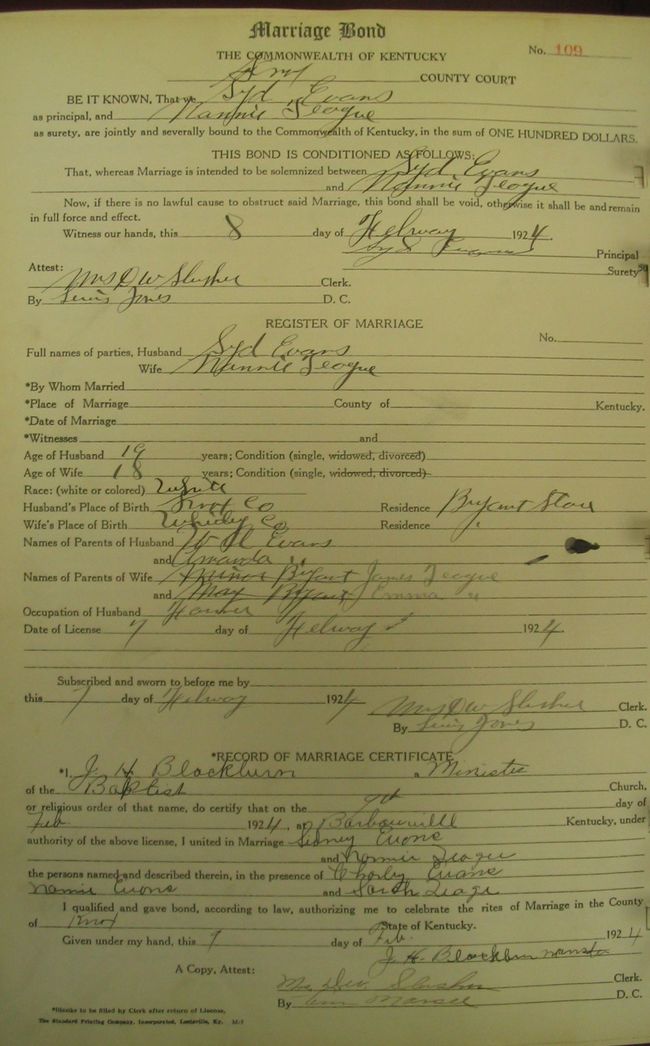 Marriage Bond
THE COMMONWEALTH OF KENTUCKY No. 109
Knox COUNTY COURT
BE IT KNOWN, That we Syd Evans
as principal, and Nannie Teague
as surety, are jointly and severally bound to the Commonwealth of Kentucky, in the sum of ONE HUNDRED DOLLARS.
THIS BOND IS CONDITIONED AS FOLLOWS:
That, whereas Marriage is intended to be solemnized between Syd Evans
and Nannie Teague
Now, if there is no lawful cause to obstruct said Marriage, this bond shall be void, otherwise it shall be and remain
in full force and effect.
Witness our hands, this 8 day of Febuary 1924
Syd Evans Principal
Attest: Surety
Mrs D W Slusher Clerk.
By Lewis Jones D. C.
REGISTER OF MARRIAGE
No.
Full names of parties, Husband Syd Evans
Wife Nannie Teague
*By Whom Married
*Place of Marriage County of Kentucky.
*Date of Marriage
*Witnesses and
Age of Husband 19 years; Condition (single, widowed, divorced)
Age of Wife 18 years; Condition (single, widowed, divorced)
Race: (white or colored) White
Husband's Place of Birth Knox Co Residence Bryant Store
Wife's Place of Birth Whitley Co Residence "
Names of Parents of Husband Evans
and Amanda "
Names of Parents of Wife Minor Bryant James Teague
and May Bryant Emma "
Occupation of Husband Farmer
Date of License 7 day of Febuary 1924
Subscribed and sworn to before me by
this 7 day of Febuary 1924 Mrs D W Slusher Clerk.
By Lewis Jones D. C.
*RECORD OF MARRIAGE CERTIFICATE
*I, J. H. Blackburn a Minister
of the Baptist Church,
or religious order of that name, do certify that on the 9th day of
Feb 1924, at Barbourville Kentucky, under
authority of the above license, I united in Marriage Sidney Evans
and Nannie Teague
the persons named and described therein, in the presence of Charley Evans
Nannie Evans and Sarah Teage
I qualified and gave bond, according to law, authorizing me to celebrate the rites of Marriage in the County
of Knox State of Kentucky.
Given under my hand, this 9 day of Feb. 1924
J. H. Blackburn
A Copy, Attest: Mrs D.W. Slusher Clerk.
By D. C.
*Blanks to be filled by Clerk after return of License,
The Standard Printing Company, Incorporated, Louisville, Ky.